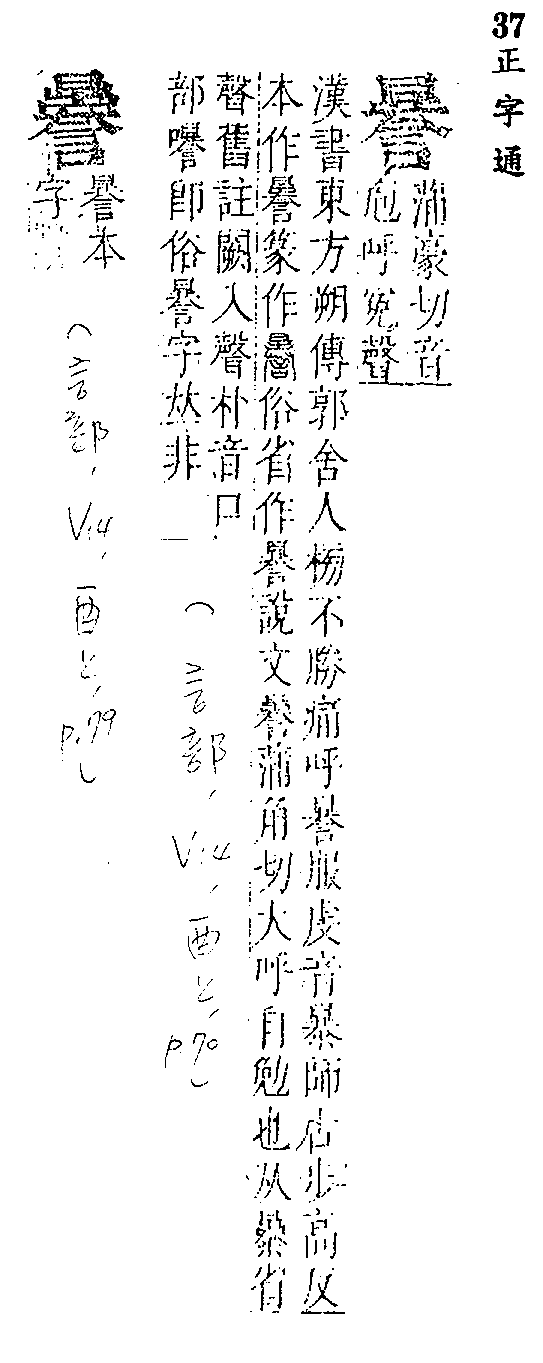 37 正字通
謈
蒲豪切音
庖呼冤聲
漢書東方朔傅郭舍人榜不勝痛呼謈服虔音暴師古步高反
本作謈篆作俗省作謈說文謈蒲角切大呼自勉也从暴省
聲舊註闕入聲朴音口
部嚗卽俗謈字𠀤非
(言部, V.14, 酉上, p.70)
謈本
字
(言部, V.14, 酉上, p.79)